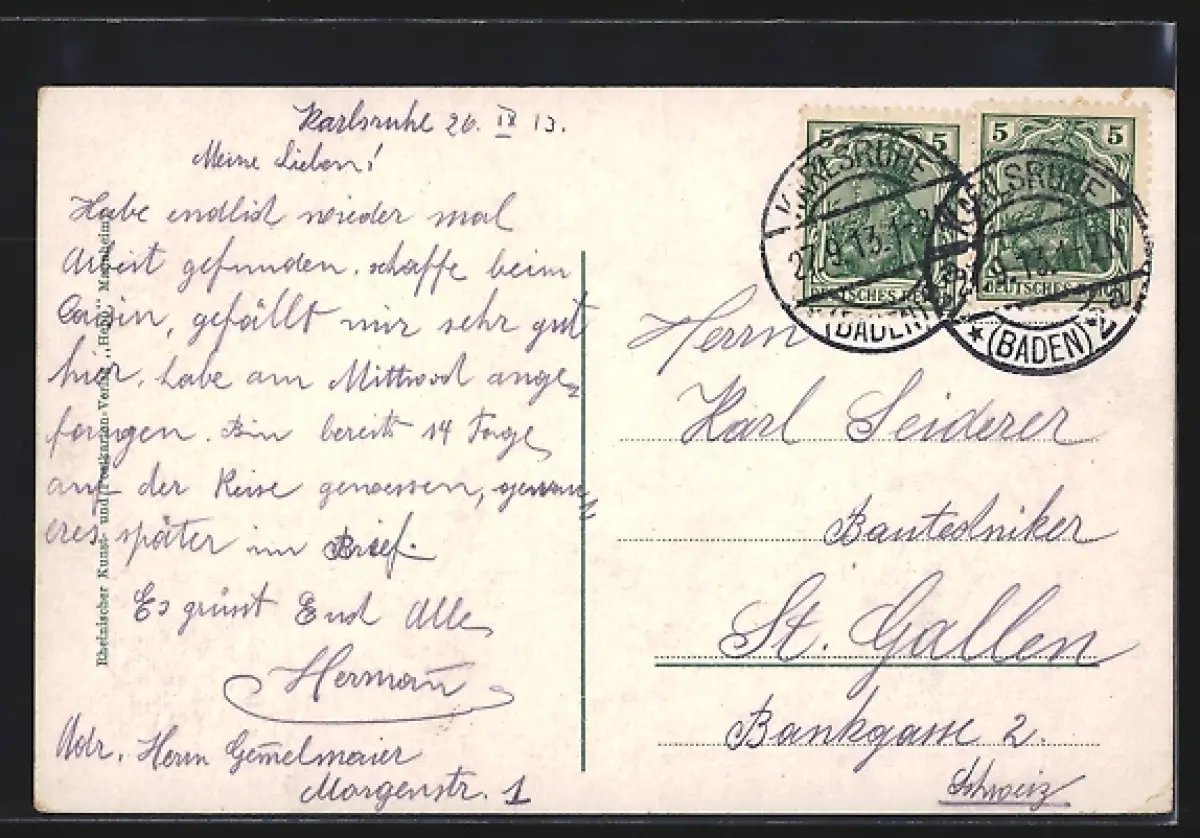 Karlsruhe 26. IX 13.
Meine Lieben!
Habe endlich wieder mal
Arbeit gefunden, schaffe beim
Cousin, gefällt mir sehr gut
hier. habe am Mittwoch ange-
fangen. Bin bereits 14 Tage
auf der Reise gewesen, genau-
eres später im Brief.
Es grüsst Euch Alle
Hermann
Adr. Herrn Gem̄elmaier
Morgenstr. 1
Rheinischer Kunst- und Postkarten-Verlag Mannheim
5 5
KARLSRUHE
27.9.13.
(BADEN)
DEUTSCHES REICH
5 5
KARLSRUHE
27.9.13. N
* (BADEN) * 2a
DEUTSCHES REICH
Herrn
Karl Seiderer
Bautechniker
St. Gallen
Bankgasse 2.
Schweiz